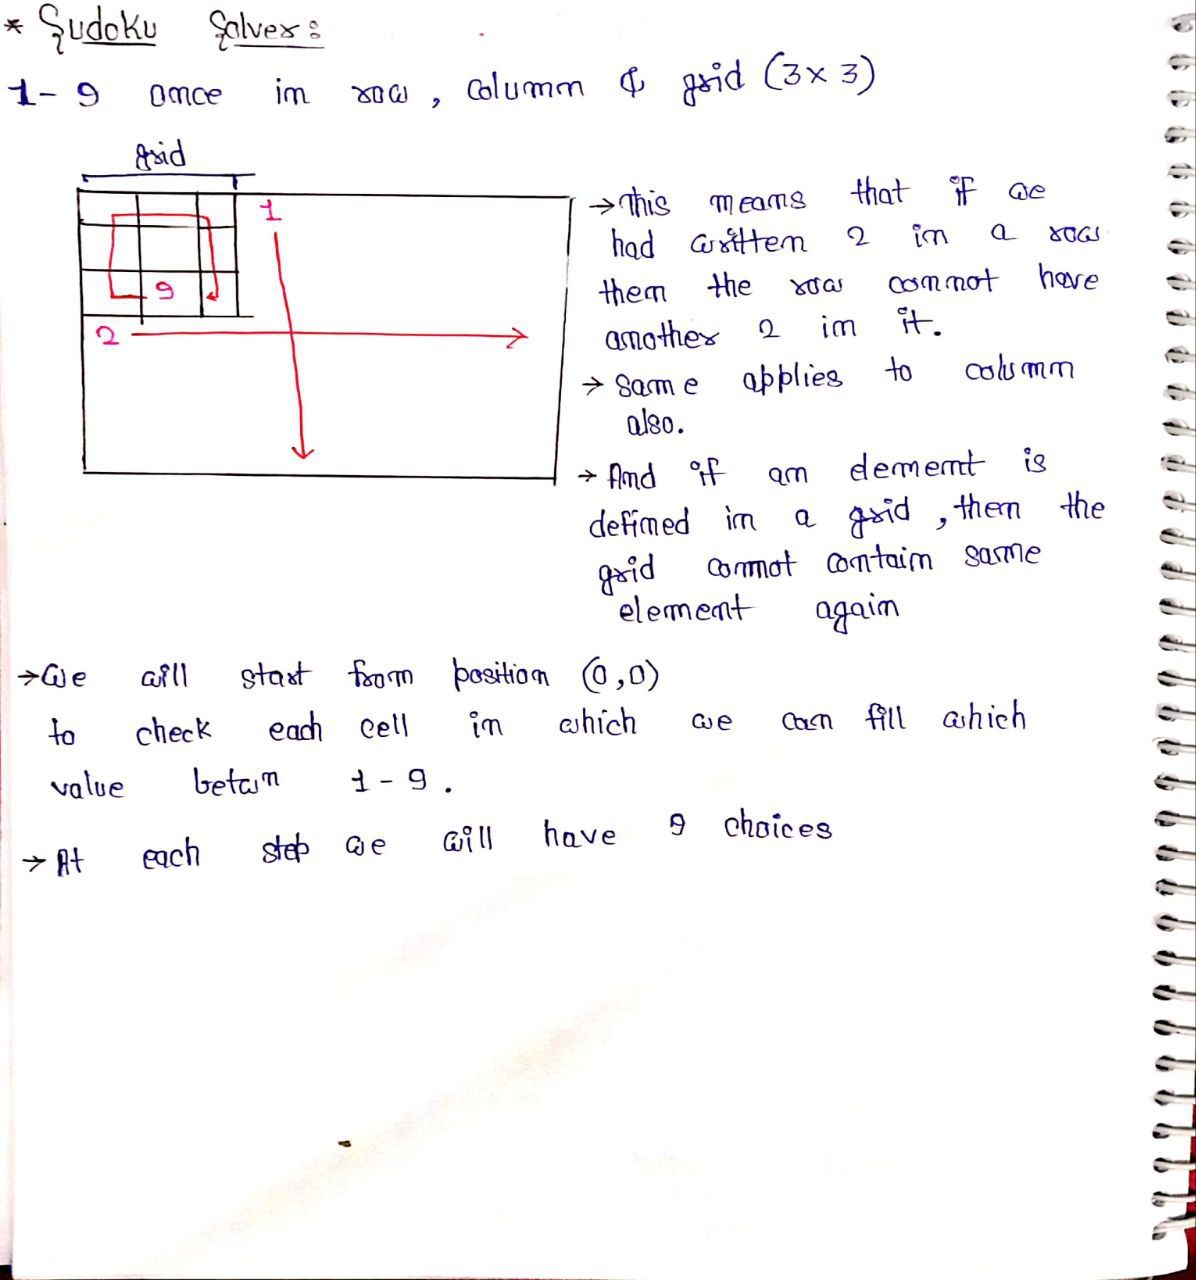 * Sudoku Solver:
1-9 once in row, column & grid (3x3)
grid
1
9
2
→ This means that if we
had written 2 in a row
then the row cannot have
another 2 in it.
→ Same applies to column
also.
→ And if an element is
defined in a grid, then the
grid cannot contain same
element again
→ We will start from position (0,0)
to check each cell in which we can fill which
value betwn 1-9.
→ At each step we will have 9 choices